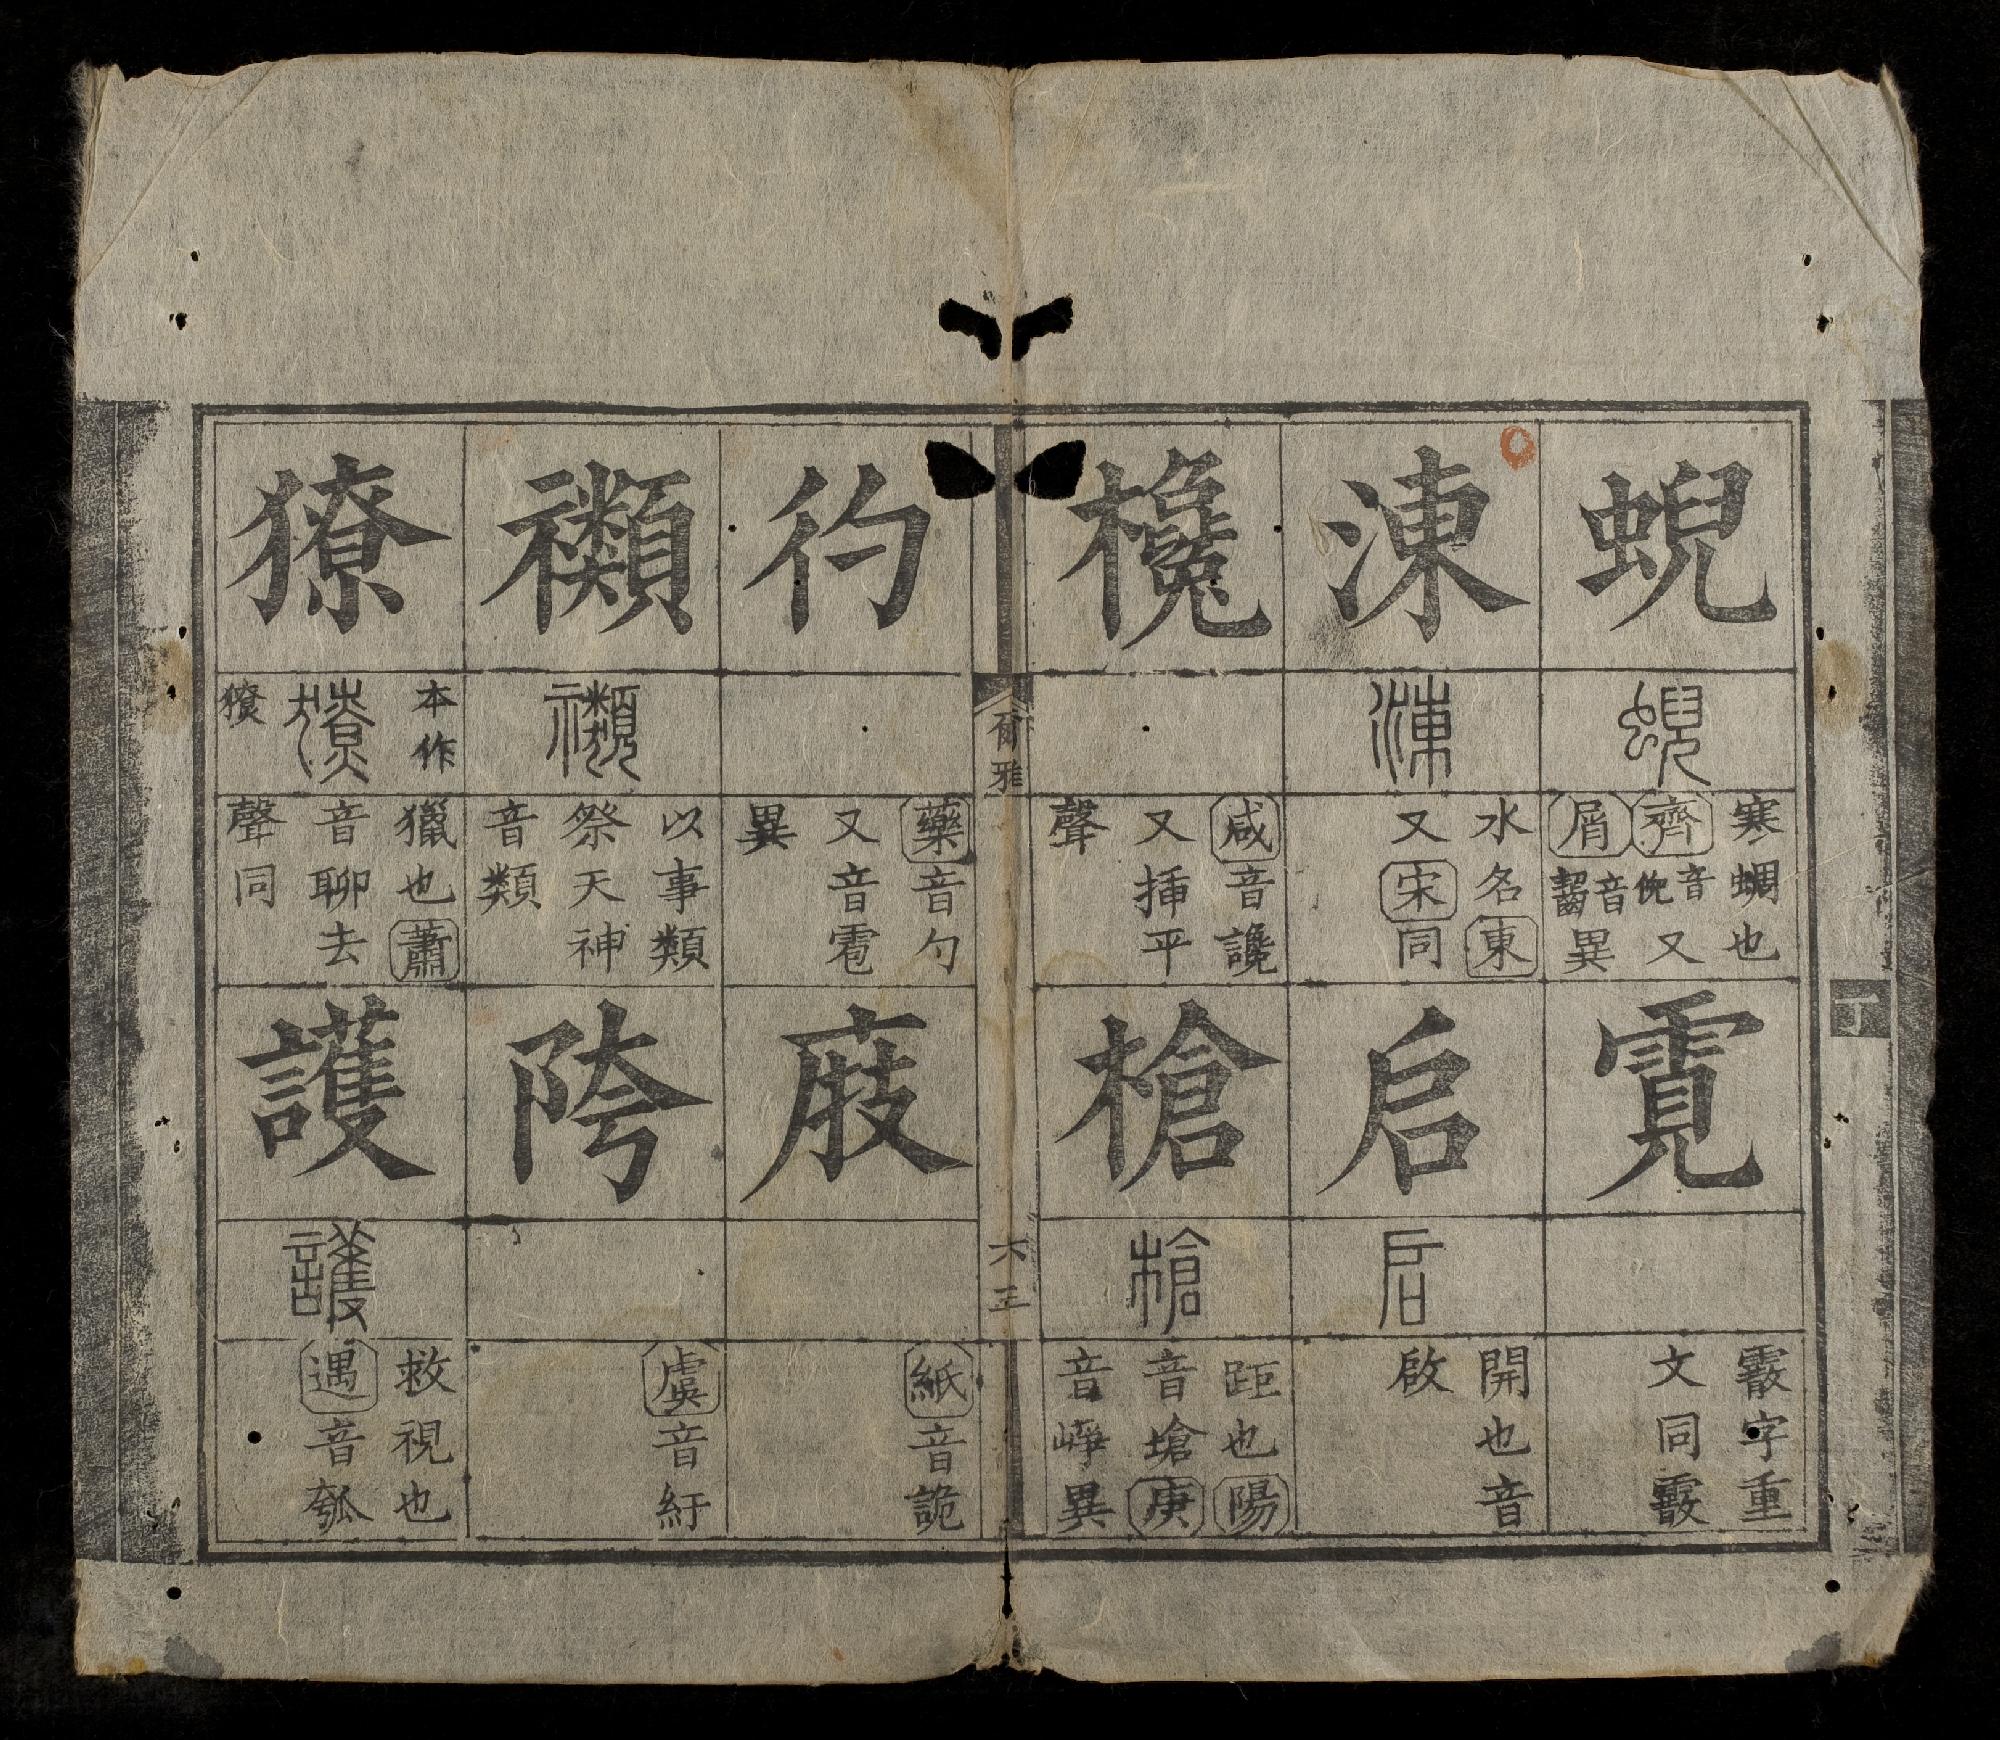 蜺
蜺
寒蜩也
齊音倪又
屑音齧異
霓
霰字重
文同霰
涷
涷
水名東
又宋同
启
启
開也音
啟
欃
咸音讒
又揷平
聲
槍
槍
距也陽
音瑲庚
音崢異
爾雅
六三
彴
藥音勺
又音雹
異
庪
紙音詭
禷
禷
以事類
祭天神
音類
䧢
虞音紆
獠
本作
獠
獵也蕭
音聊去
聲同
護
護
救視也
遇音瓠
丁